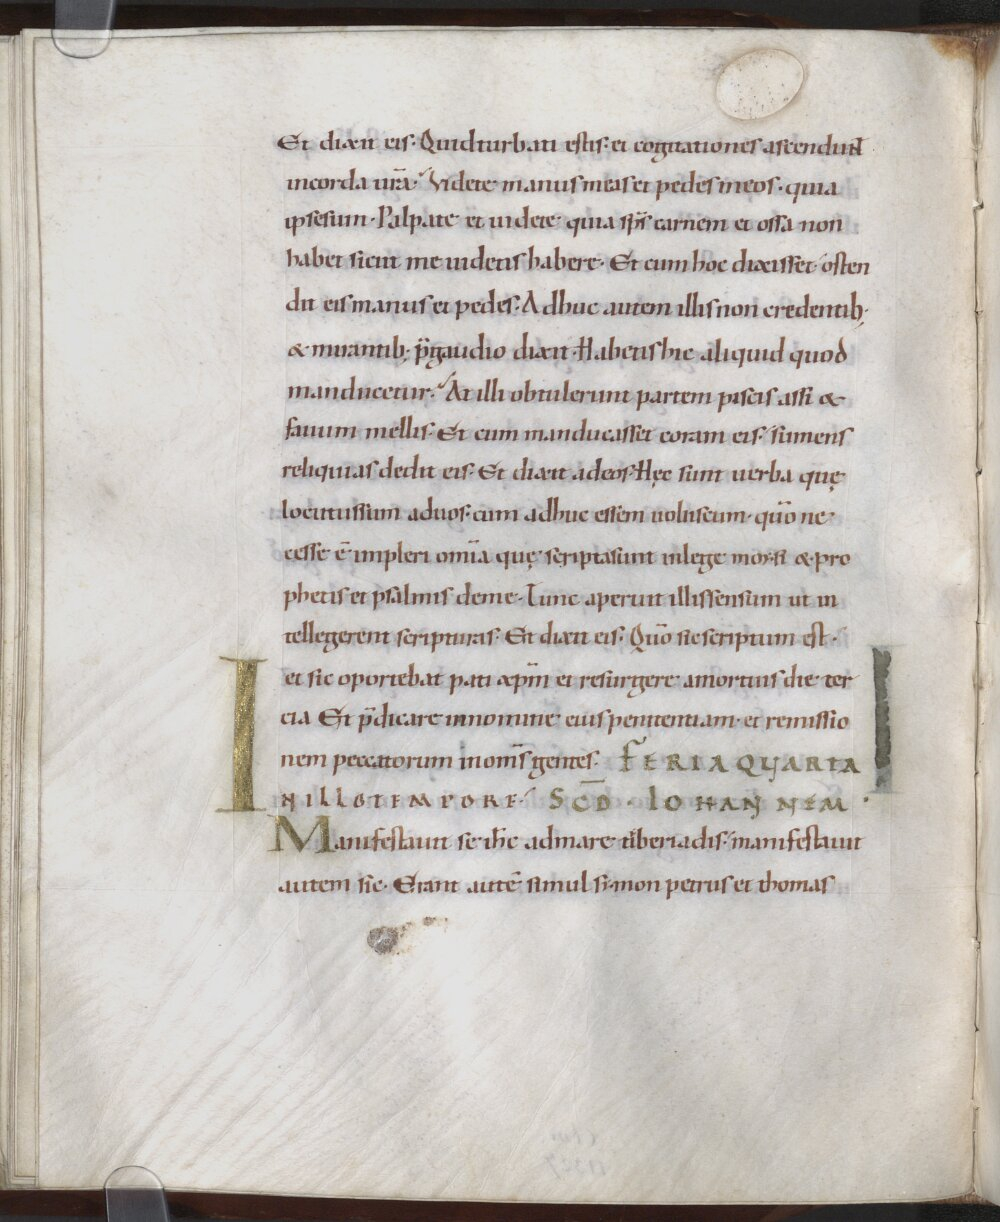 Et dixit eis· Quid turbati estis· et cogitationes ascendunt
in corda ur̄a· Videte manus meas et pedes meos· quia
ipse sum· Palpate et uidete quia sp̄s carnem et ossa non
habet sicut me uidetis habere· Et cum hoc dixisset osten
dit eis manus et pedes· Adhuc autem illis non credentib;
& mirantib; p̄ gaudio dixit· Habetis hic aliquid quod
manducetur· At illi obtulerunt partem piscis assi &
fauum mellis· Et cum manducasset coram eis· sumens
reliquias dedit eis· Et dixit ad eos· Hęc sunt uerba quę
locutus sum ad uos· cum adhuc essem uobiscum· quō ne
cesse ē impleri om̄ia quę scripta sunt in lege moysi & pro
phetis et psalmis de me· Tunc aperuit illis sensum ut in
tellegerent scripturas· Et dixit eis· Quō sic scriptum est·
et sic oportebat pati xp̄m et resurgere a mortuis die ter
cia Et p̄dicare in nomine eius penitentiam· et remissio
nem peccatorum in om̄s gentes· FERIA QUARTA
IN ILLO TEMPORE· SCD̄· IOHANNEM·
Manifestauit se ih̄c ad mare tiberiadis· manifestauit
autem sic· Erant autē simul simon petrus et thomas